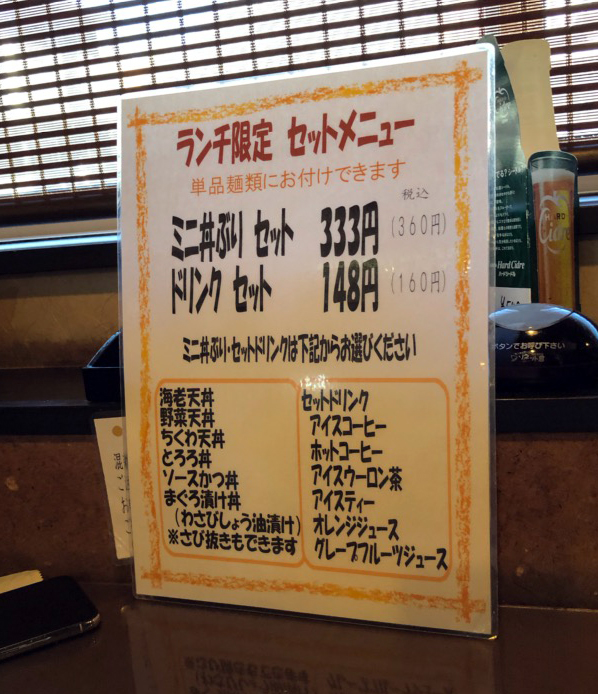 ランチ限定 セットメニュー
単品麺類にお付けできます
税込
ミニ丼ぶり セット 333円 (360円)
ドリンク セット 148円 (160円)
ミニ丼ぶり・セットドリンクは下記からお選びください
海老天丼
野菜天丼
ちくわ天丼
とろろ丼
ソースかつ丼
まぐろ漬け丼
(わさびしょう油漬け)
※さび抜きもできます
セットドリンク
アイスコーヒー
ホットコーヒー
アイスウーロン茶
アイスティー
オレンジジュース
グレープフルーツジュース
HARD
Cidre
Hard Cidre
ボタンでお呼び下さい